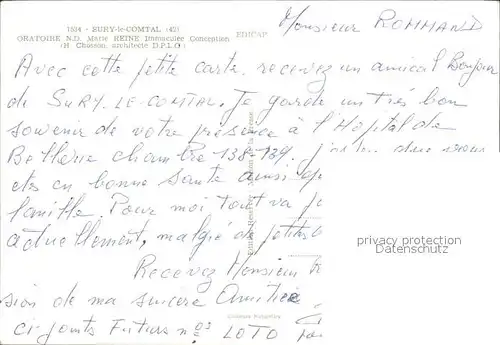 1534 - SURY-le-COMTAL (42)
ORATOIRE N.D. Marie REINE Immaculée Conception
(H. Chosson, architecte D.P.L.G.)
EDICAP
Monsieur ROMMAND
Avec cette petite carte recevez un amical Bonjour
de SURY-LE-COMTAL. Je garde un très bon
souvenir de votre présence à l'Hôpital de
Bellevue chambre 138-139. que vous
etes en bonne Santé ainsi que
famille. Pour moi tout va
actuellement, malgré de petits
Recevez Monsieur
sion de ma sincère Amitié
ci-joints Futurs nos LOTO
privacy protection
(address removed)